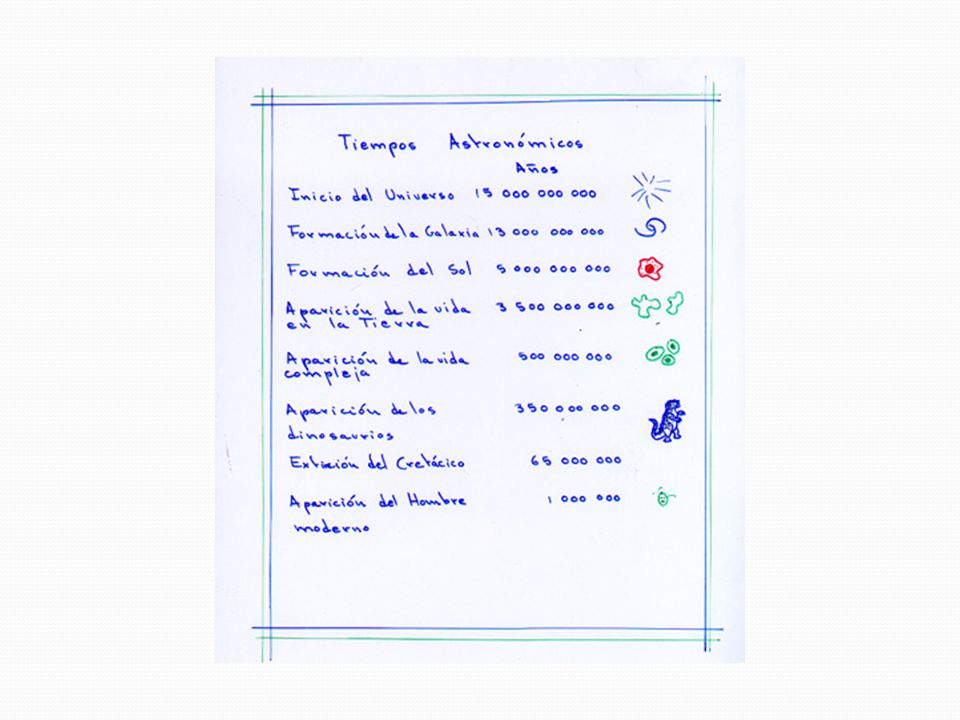 Tiempos Astronómicos
Años
Inicio del Universo 15 000 000 000
Formación de la Galaxia 13 000 000 000
Formación del Sol 5 000 000 000
Aparición de la vida 3 500 000 000
en la Tierra
Aparición de la vida 500 000 000
compleja
Aparición de los 350 000 000
dinosaurios
Extinción del Cretácico 65 000 000
Aparición del Hombre 1 000 000
moderno